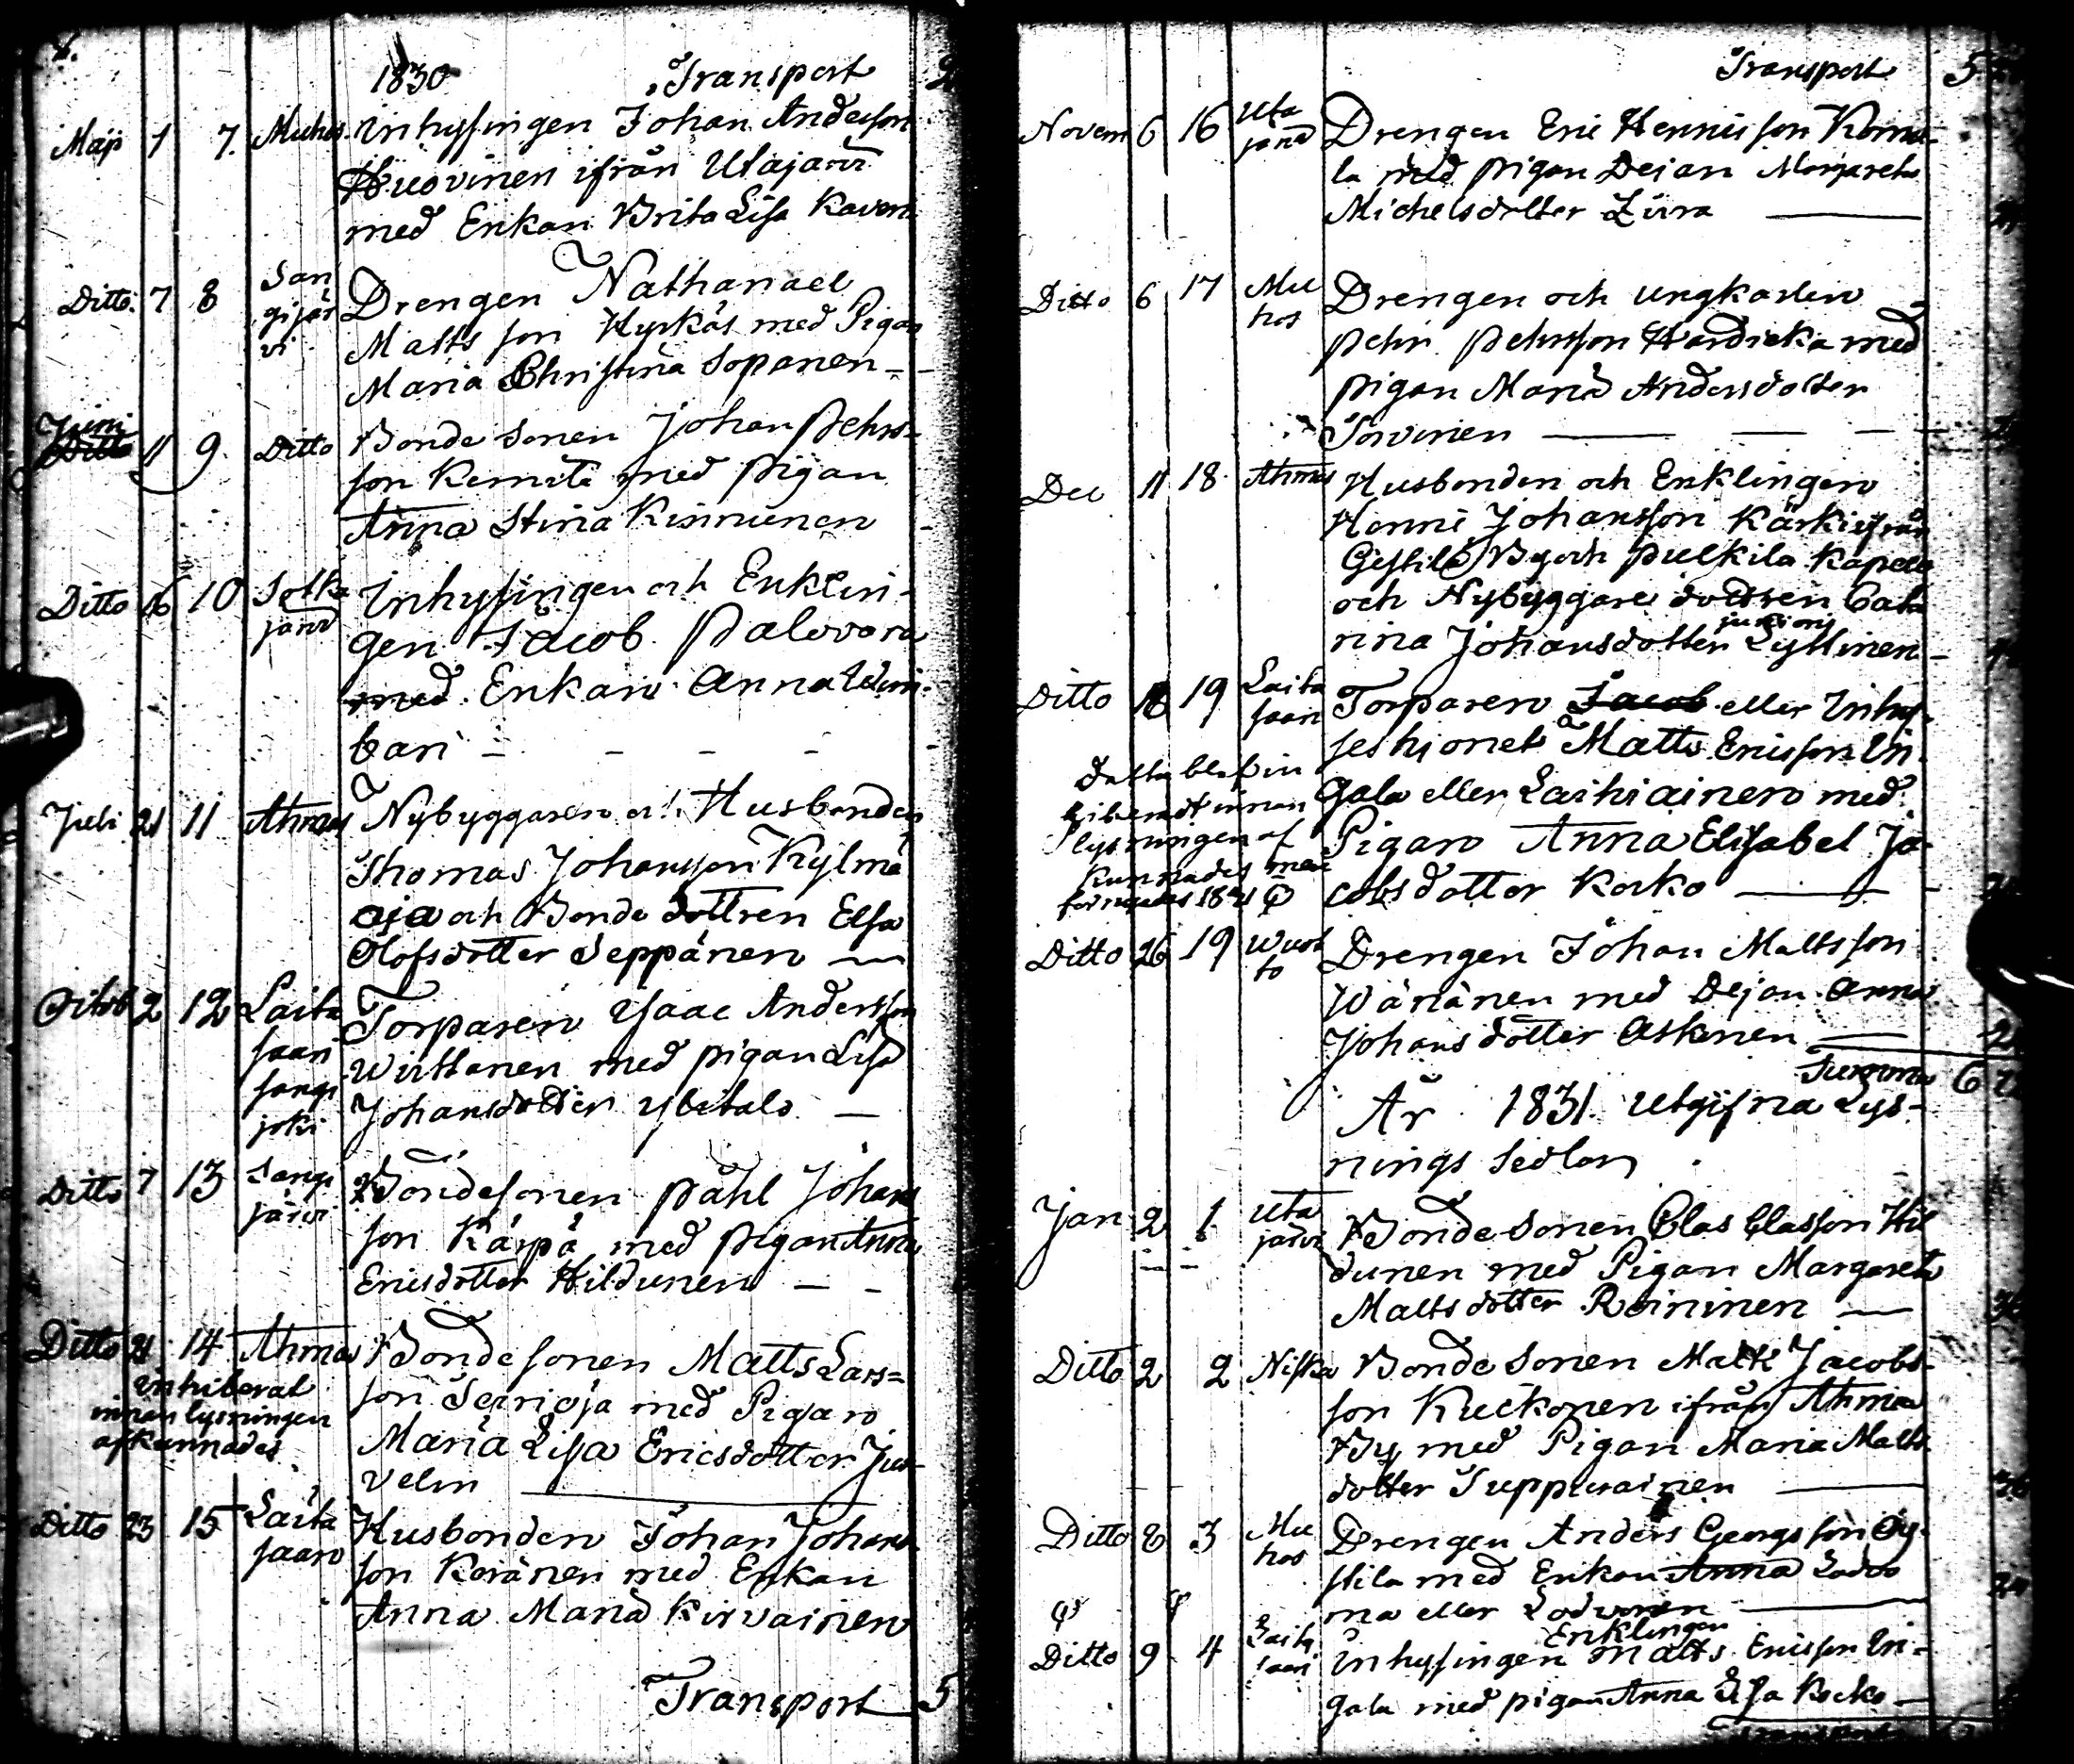 1830 Transport
Maji 1 7. Muhos Inhysingen Johan Andersson
Huovinen ifrån Utajärvi
med Enkan Brita Lisa Kaven
Ditto 7 8 San
gijär
vi
Drengen Nathanael
Matts son Hyrkäs med Pigan
Maria Christina Sopanen
Juni
Ditto 11 9. Ditto Bonde Sonen Johan Pehrs-
son Kemita med pigan
Anna Stina Kinnunen
Ditto 16 10 Sotka
jarvi
Inhysingen och Enklin-
gen Jacob Palovara
med Enkan Anna
bari
Juli 21 11 Ahmas Nybyggaren och Husbonden
Thomas Johansson Kylmä
oja och Bonde dottren Elsa
Olofsdotter Seppänen
Octob 2 12 Laita
saari
sangi
joki
Torparen Isaac Andersson
Wirttanen med pigan Lisa
Johansdotter Ylitalo
Ditto 7 13 Sangi
järvi
Bondesonen Påhl Johans
son Kärpä med pigan Anna
Ericsdotter Hildunen
Ditto 21 14 Ahmas Bondesonen Matts Lars=
son Seirioja med Pigan
Maria Lisa Ericsdotter Jur-
velin
inhiberat
innan lysningen
afkunnades
Ditto 23 15 Laita
saari
Husbonden Johan Johans
son Keränen med Enkan
Anna Maria Kirvainen
Transport 5
Transport 5
Novem 6 16 Uta
järvi
Drengen Eric Hennisson Koma-
la med pigan Dejan Margareta
Michelsdotter Zura
Ditto 6 17 Mu
hos
Drengen och ungkarlen
Pehr Pehrsson Hardicka med
pigan Maria Andersdotter
Torvinen
Dec 11 18. Ahmas Husbonden och Enklingen
Henric Johansson Kärki ifrån
Gestilä By och Pulkila Kapell
och Nybyggare dottren Catha
rina Johansdotter Lyttinen
Ditto 18 19 Laita
saari
Torparen Jacob eller Inhy-
ses hjonet Matts Ericsson In-
gala eller Laihiainen med
Pigan Anna Elisabet Ja-
cobsdotter Korko
Detta blef in
hiberadt innan
lysningen af
kunnades men
förnyades 1831
Ditto 26 19 Wuot
to
Drengen Johan Mattsson
Wänänen med Dejan Anna
Johansdotter Atkonen
Summa 6
År 1831. Utgifna Lys-
nings Sedlar
Jan 2 1 Uta
järvi
Bonde Sonen Clas Classon Hil
dunen med Pigan Margareta
Mattsdotter Roininen
Ditto 2 2 Niska Bonde Sonen Matts Jacobs-
son Kuckonen ifrån Ahmas
By med Pigan Maria Matts
dotter Suppurainen
Ditto 8 3 Mu
hos
Drengen Anders Georgsson Oy-
stila med Enkan Anna Lado
ma eller Lodvonen
Enklingen
Ditto 9 4 Laita
saari
Inhysingen Matts Ericsson In-
gala med pigan Anna Lisa Korko
Transport